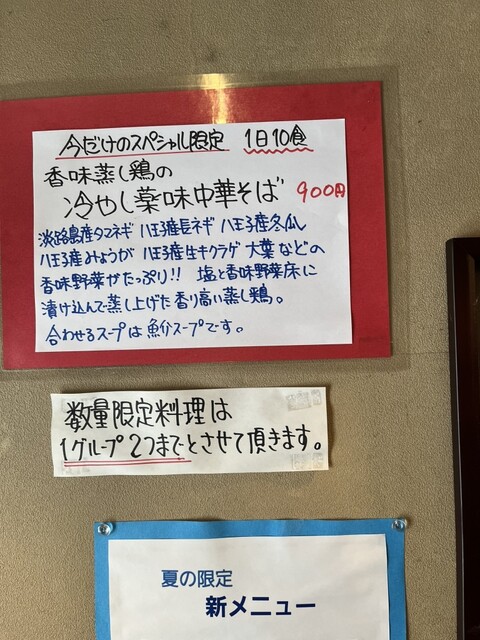 今だけのスペシャル限定 1日10食
香味蒸し鶏の
冷やし薬味中華そば 900円
淡路島産タマネギ 八王子産長ネギ 八王子産冬瓜
八王子産みょうが 八王子産生キクラゲ 大葉などの
香味野菜がたっぷり!! 塩と香味野菜床に
漬け込んで蒸し上げた香り高い蒸し鶏。
合わせるスープは魚介スープです。
数量限定料理は
1グループ2つまでとさせて頂きます。
夏の限定
新メニュー